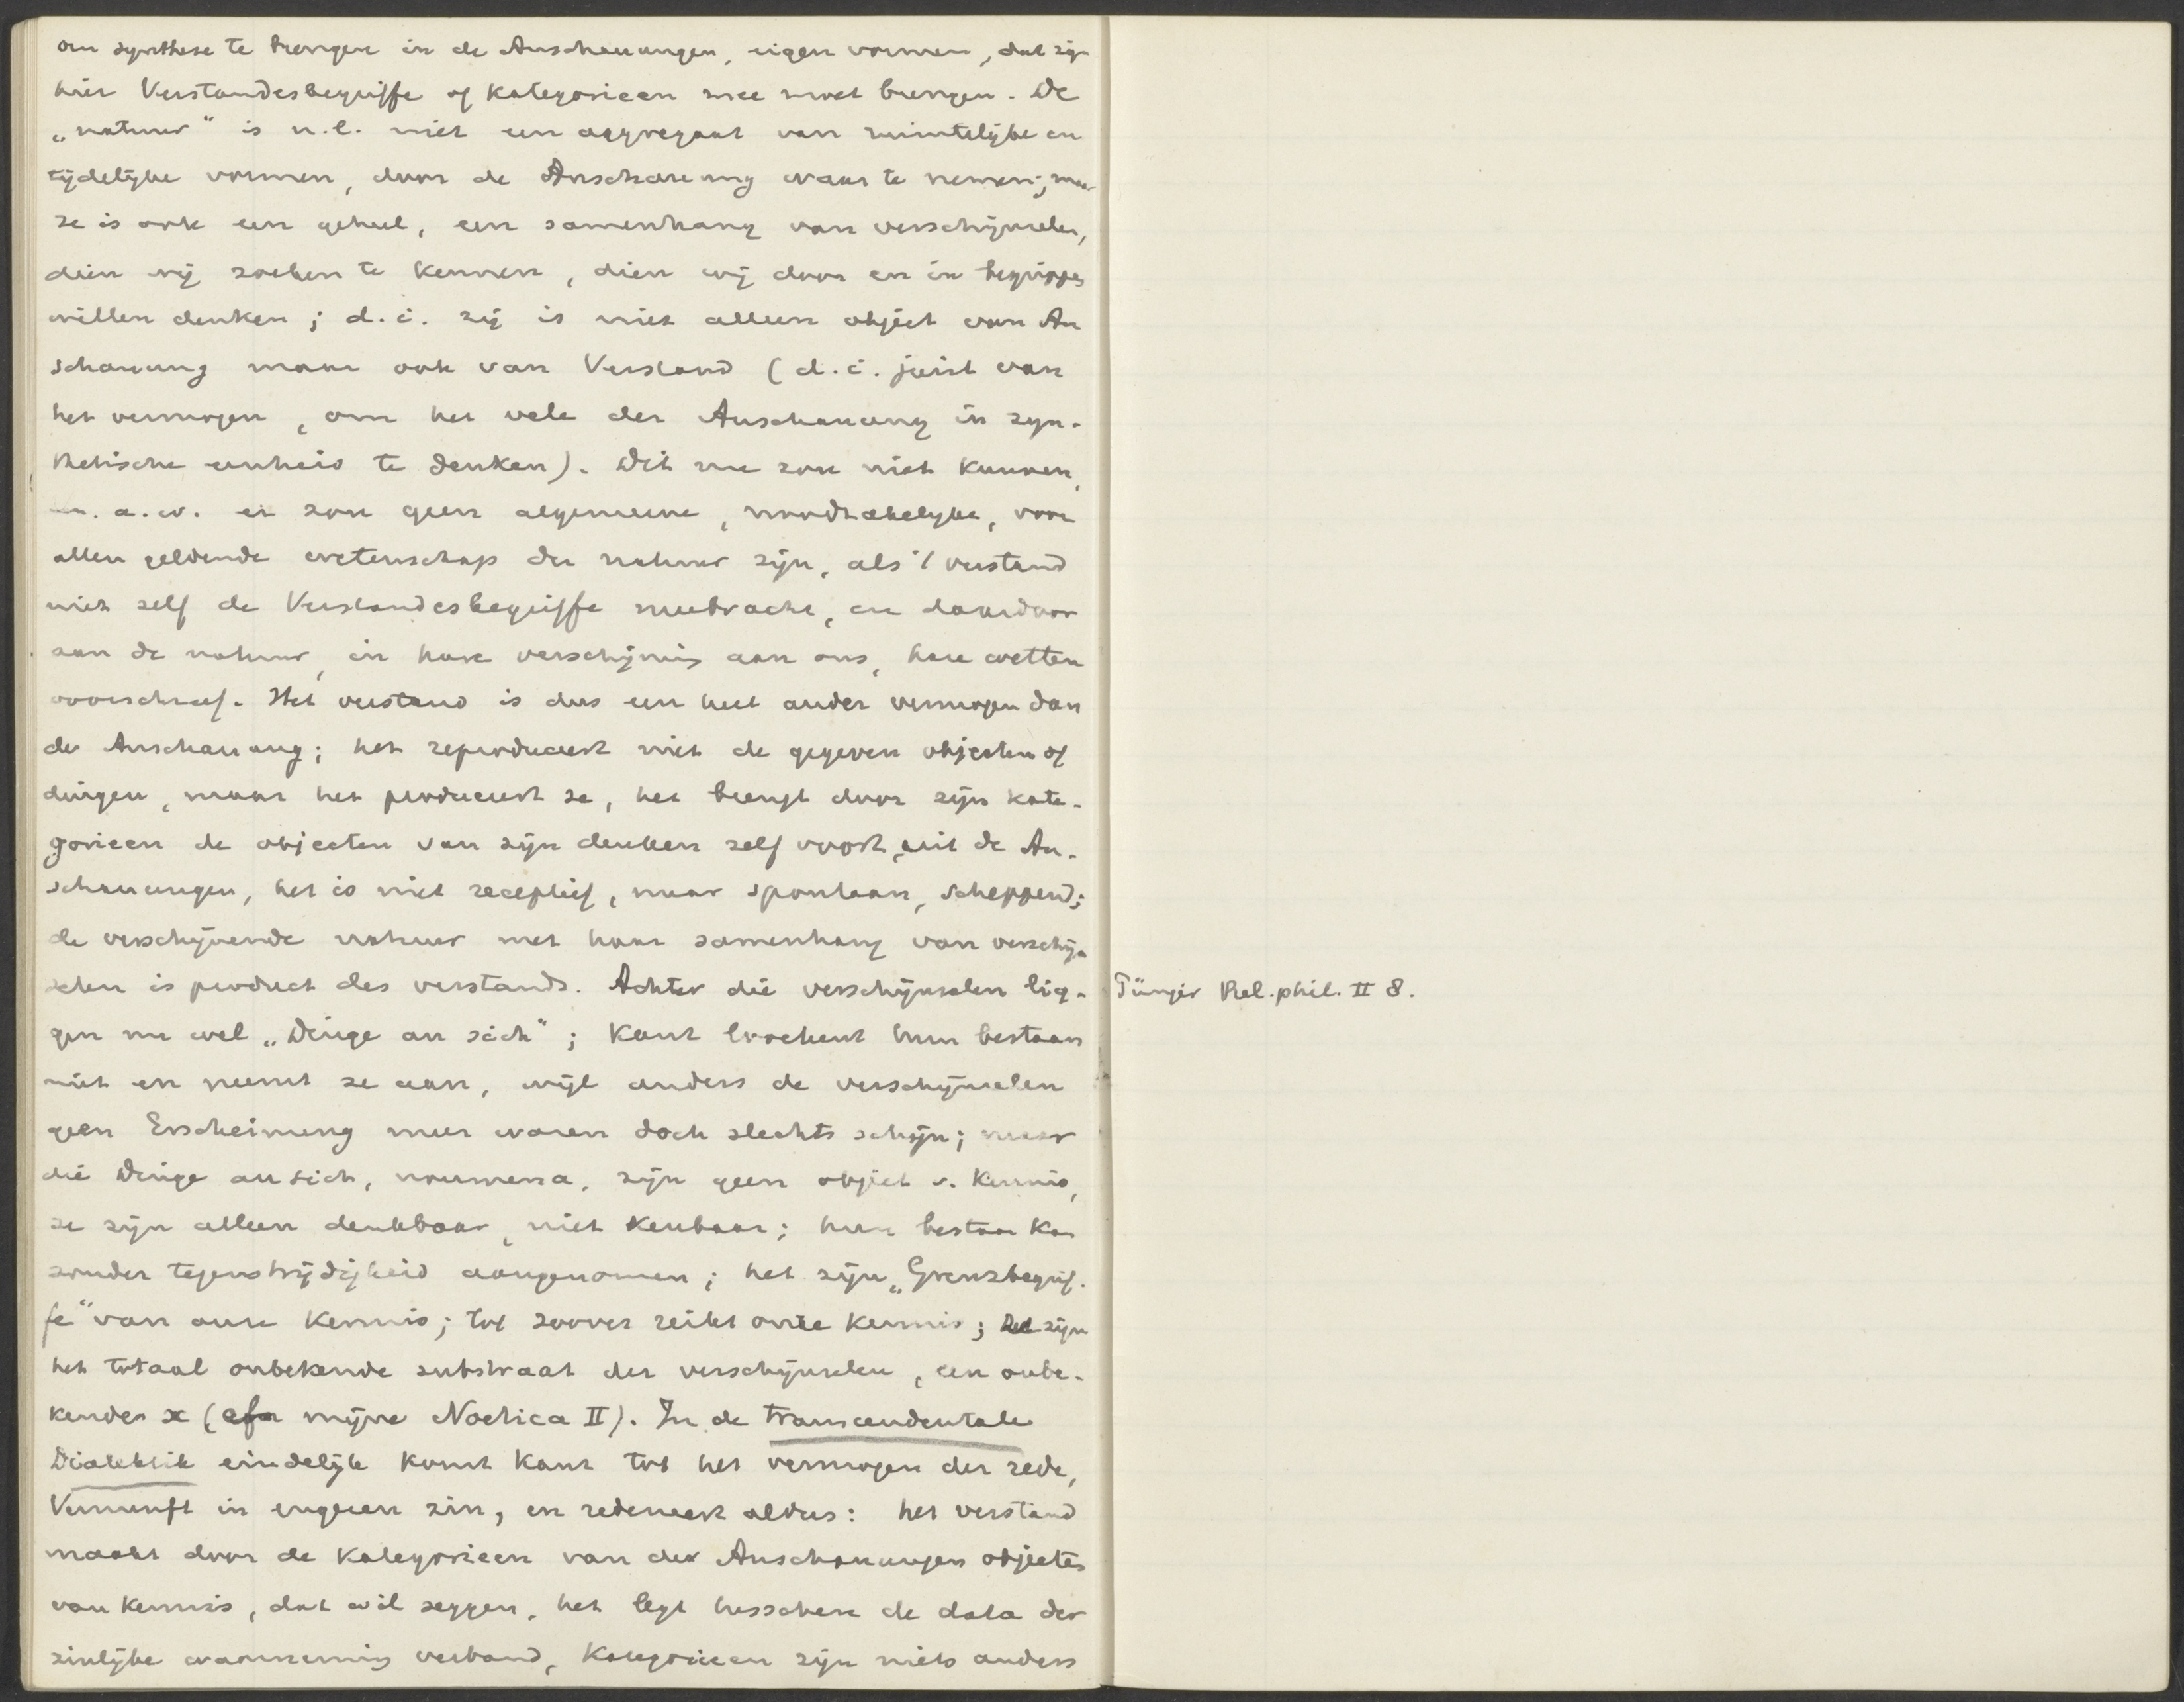 om synthese te brengen in de Anschauungen, eigen vormen, dat zijn
hier Verstandesbegriffe of Kategorieen mee moet brengen. De
„natuur" is n.l. niet een aggregaat van ruimtelijke en
tijdelijke vormen, door de Anschauung waar te nemen; maar
ze is ook een geheel, een samenhang van verschijnselen,
dien wij zoeken te kennen, dien wij door en in begrippen
willen denken; d.i. zij is niet alleen object van An
schauung maar ook van Verstand (d.i. juist van
het vermogen, om het vele der Anschauung in syn-
thetische eenheid te denken). Dit nu zou niet kunnen,
m.a.w. er zou geen algemeene, noodzakelijke, voor
allen geldende wetenschap der natuur zijn, als 't verstand
niet zelf de Verstandesbegriffe meebracht, en daardoor
aan de natuur, in hare verschijning aan ons, hare wetten
voorschreef. Het verstand is dus een heel ander vermogen dan
de Anschauung; het reproduceert niet de gegeven objecten of
dingen, maar het produceert ze, het brengt door zijn kate-
gorieen de objecten van zijn denken zelf voort, uit de An-
schauungen, het is niet receptief, maar spontaan, scheppend;
de verschijnende natuur met haar samenhang van verschijn
selen is product des verstands. Achter die verschijnselen lig-
gen nu wel „Dinge an sich"; Kant loochent hun bestaan
niet en neemt ze aan, wijl anders de verschijnselen
geen Erscheinung meer waren doch slechts schijn; maar
die Dinge an sich, noumena, zijn geen object v. kennis,
ze zijn alleen denkbaar, niet kenbaar; hun bestaan kan
zonder tegenstrijdigheid aangenomen; het zijn „Grenzbegrif-
fe" van onze kennis; tot zoover reikt onze kennis; ze zijn
het totaal onbekende substraat der verschijnselen, een onbe-
kende x (cfr mijne Noetica II). In de transcendentale
Dialektik eindelijk komt Kant tot het vermogen der rede,
Vernunft in engeren zin, en redeneert aldus: het verstand
maakt door de Kategorieen van der Anschauungen objecten
van kennis, dat wil zeggen, het legt tusschen de data der
zinlijke waarneming verband, Kategorieen zijn niets anders
Pünjer Rel.phil. II 8.